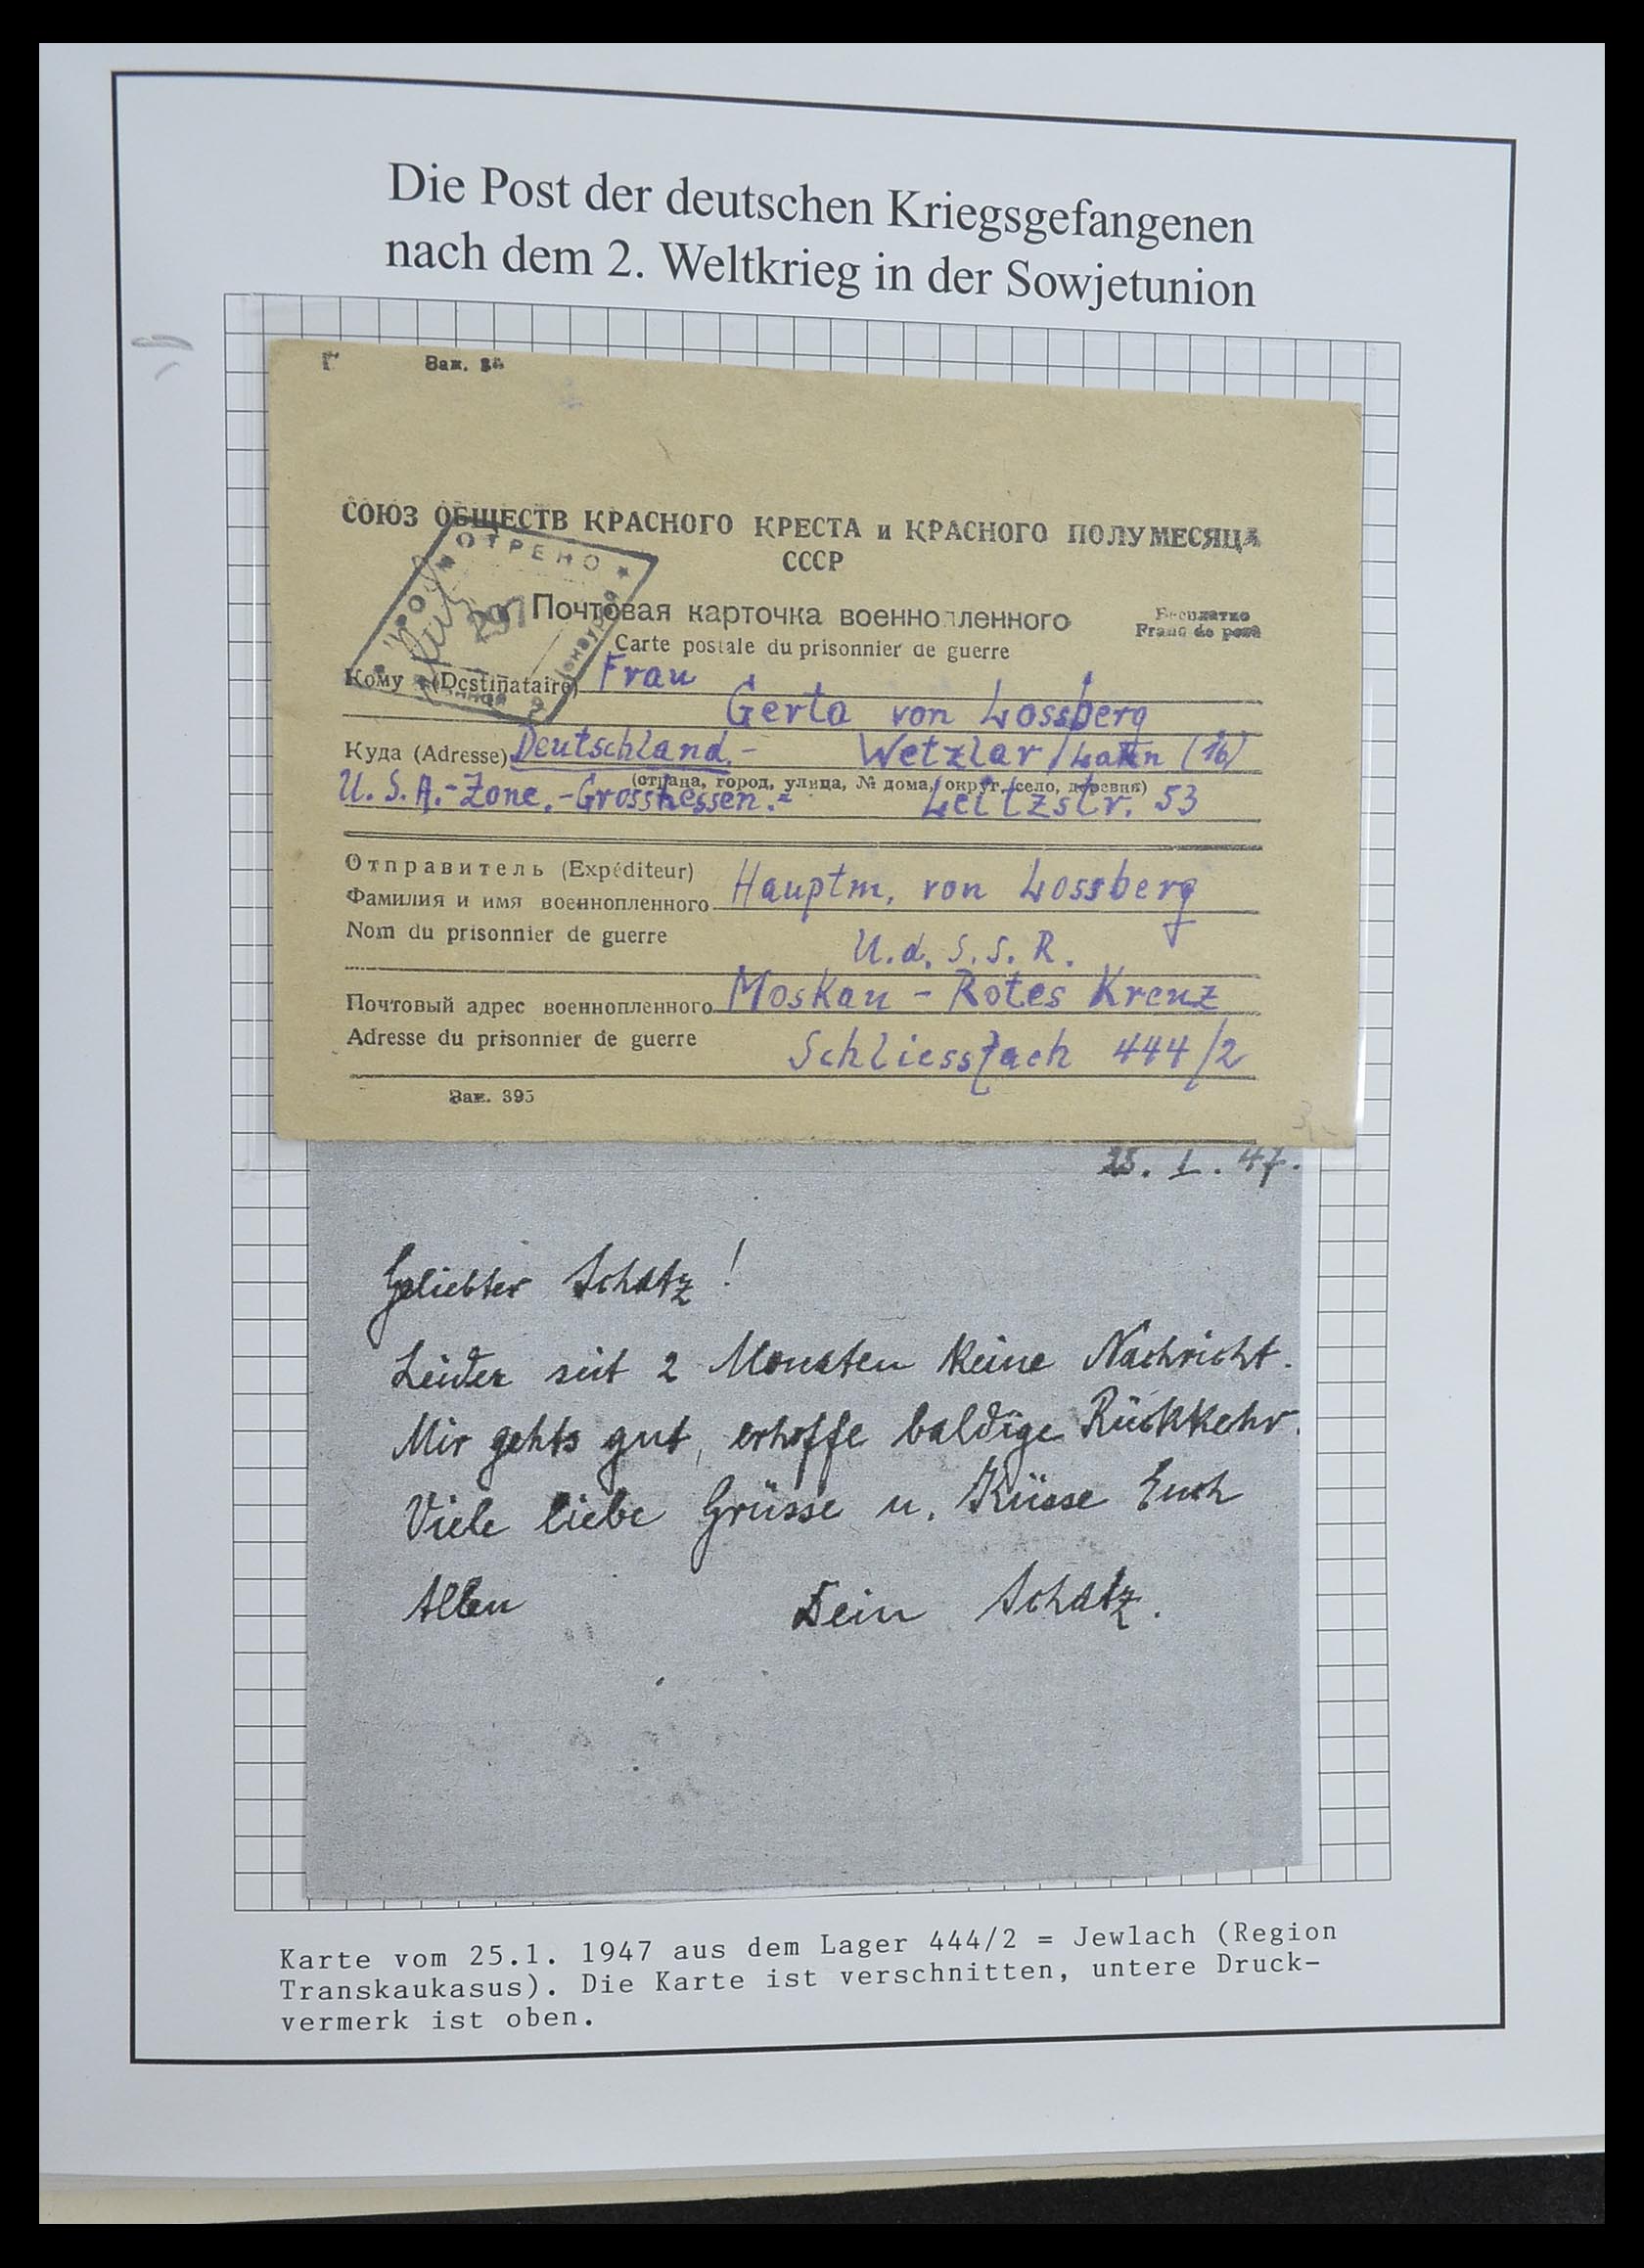 Die Post der deutschen Kriegsgefangenen
nach dem 2. Weltkrieg in der Sowjetunion
Зак.
СОЮЗ ОБЩЕСТВ КРАСНОГО КРЕСТА и КРАСНОГО ПОЛУМЕСЯЦА
СССР
Почтовая карточка военнопленного
Бесплатно
Carte postale du prisonnier de guerre
Franc de port
Кому (Destinataire) Frau
Gerta von Lossberg
Куда (Adresse) Deutschland.- Wetzlar/Lahn (16)
(страна, город, улица, № дома, округ, село, деревня)
U.S.A.-Zone.-Grosshessen.- Leitzstr. 53
Отправитель (Expéditeur)
Фамилия и имя военнопленного Hauptm. von Lossberg
Nom du prisonnier de guerre
U.d.S.S.R.
Почтовый адрес военнопленного Moskau - Rotes Kreuz
Adresse du prisonnier de guerre
Schliessfach 444/2
Зак. 395
25. I. 47.
Geliebter Schatz!
Leider seit 2 Monaten keine Nachricht.
Mir gehts gut, erhoffe baldige Rückkehr.
Viele liebe Grüsse u. Küsse Euch
Allen Dein Schatz.
Karte vom 25.1. 1947 aus dem Lager 444/2 = Jewlach (Region
Transkaukasus). Die Karte ist verschnitten, untere Druck-
vermerk ist oben.